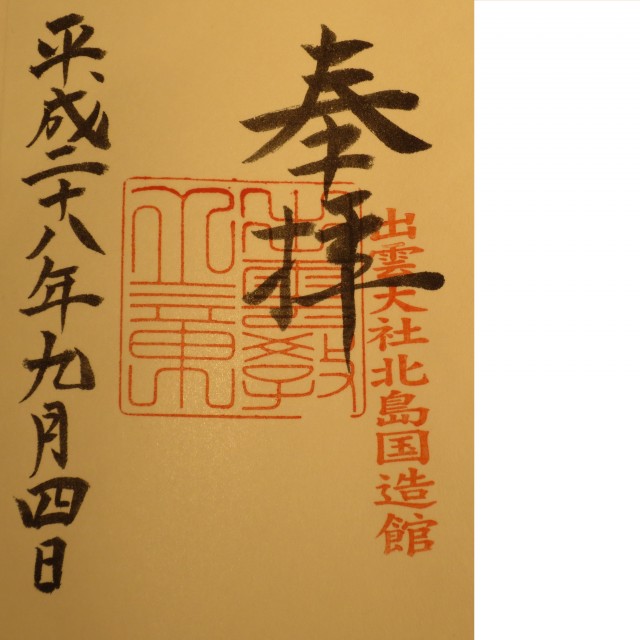 奉拝
出雲大社北島国造館
出雲教
平成二十八年九月四日